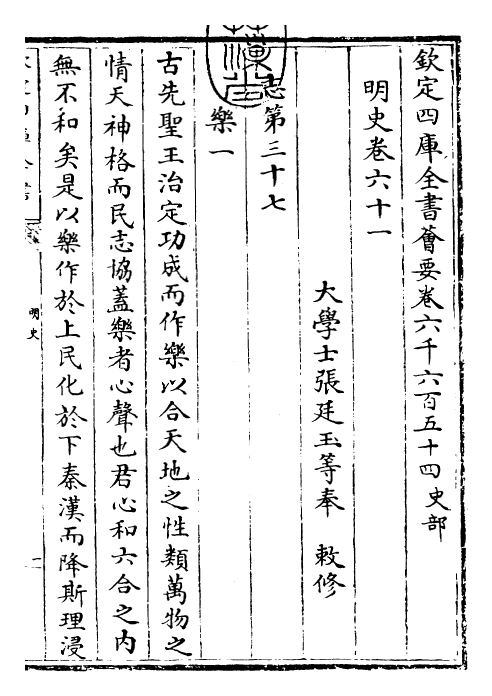 欽定四庫全書薈要卷六千六百五十四史部
明史卷六十一
大學士張廷玉等奉　敕修
志第三十七
樂一
古先聖王治定功成而作樂以合天地之性類萬物之
情天神格而民志協蓋樂者心聲也君心和六合之內
無不和矣是以樂作於上民化於下秦漢而降斯理浸
明史